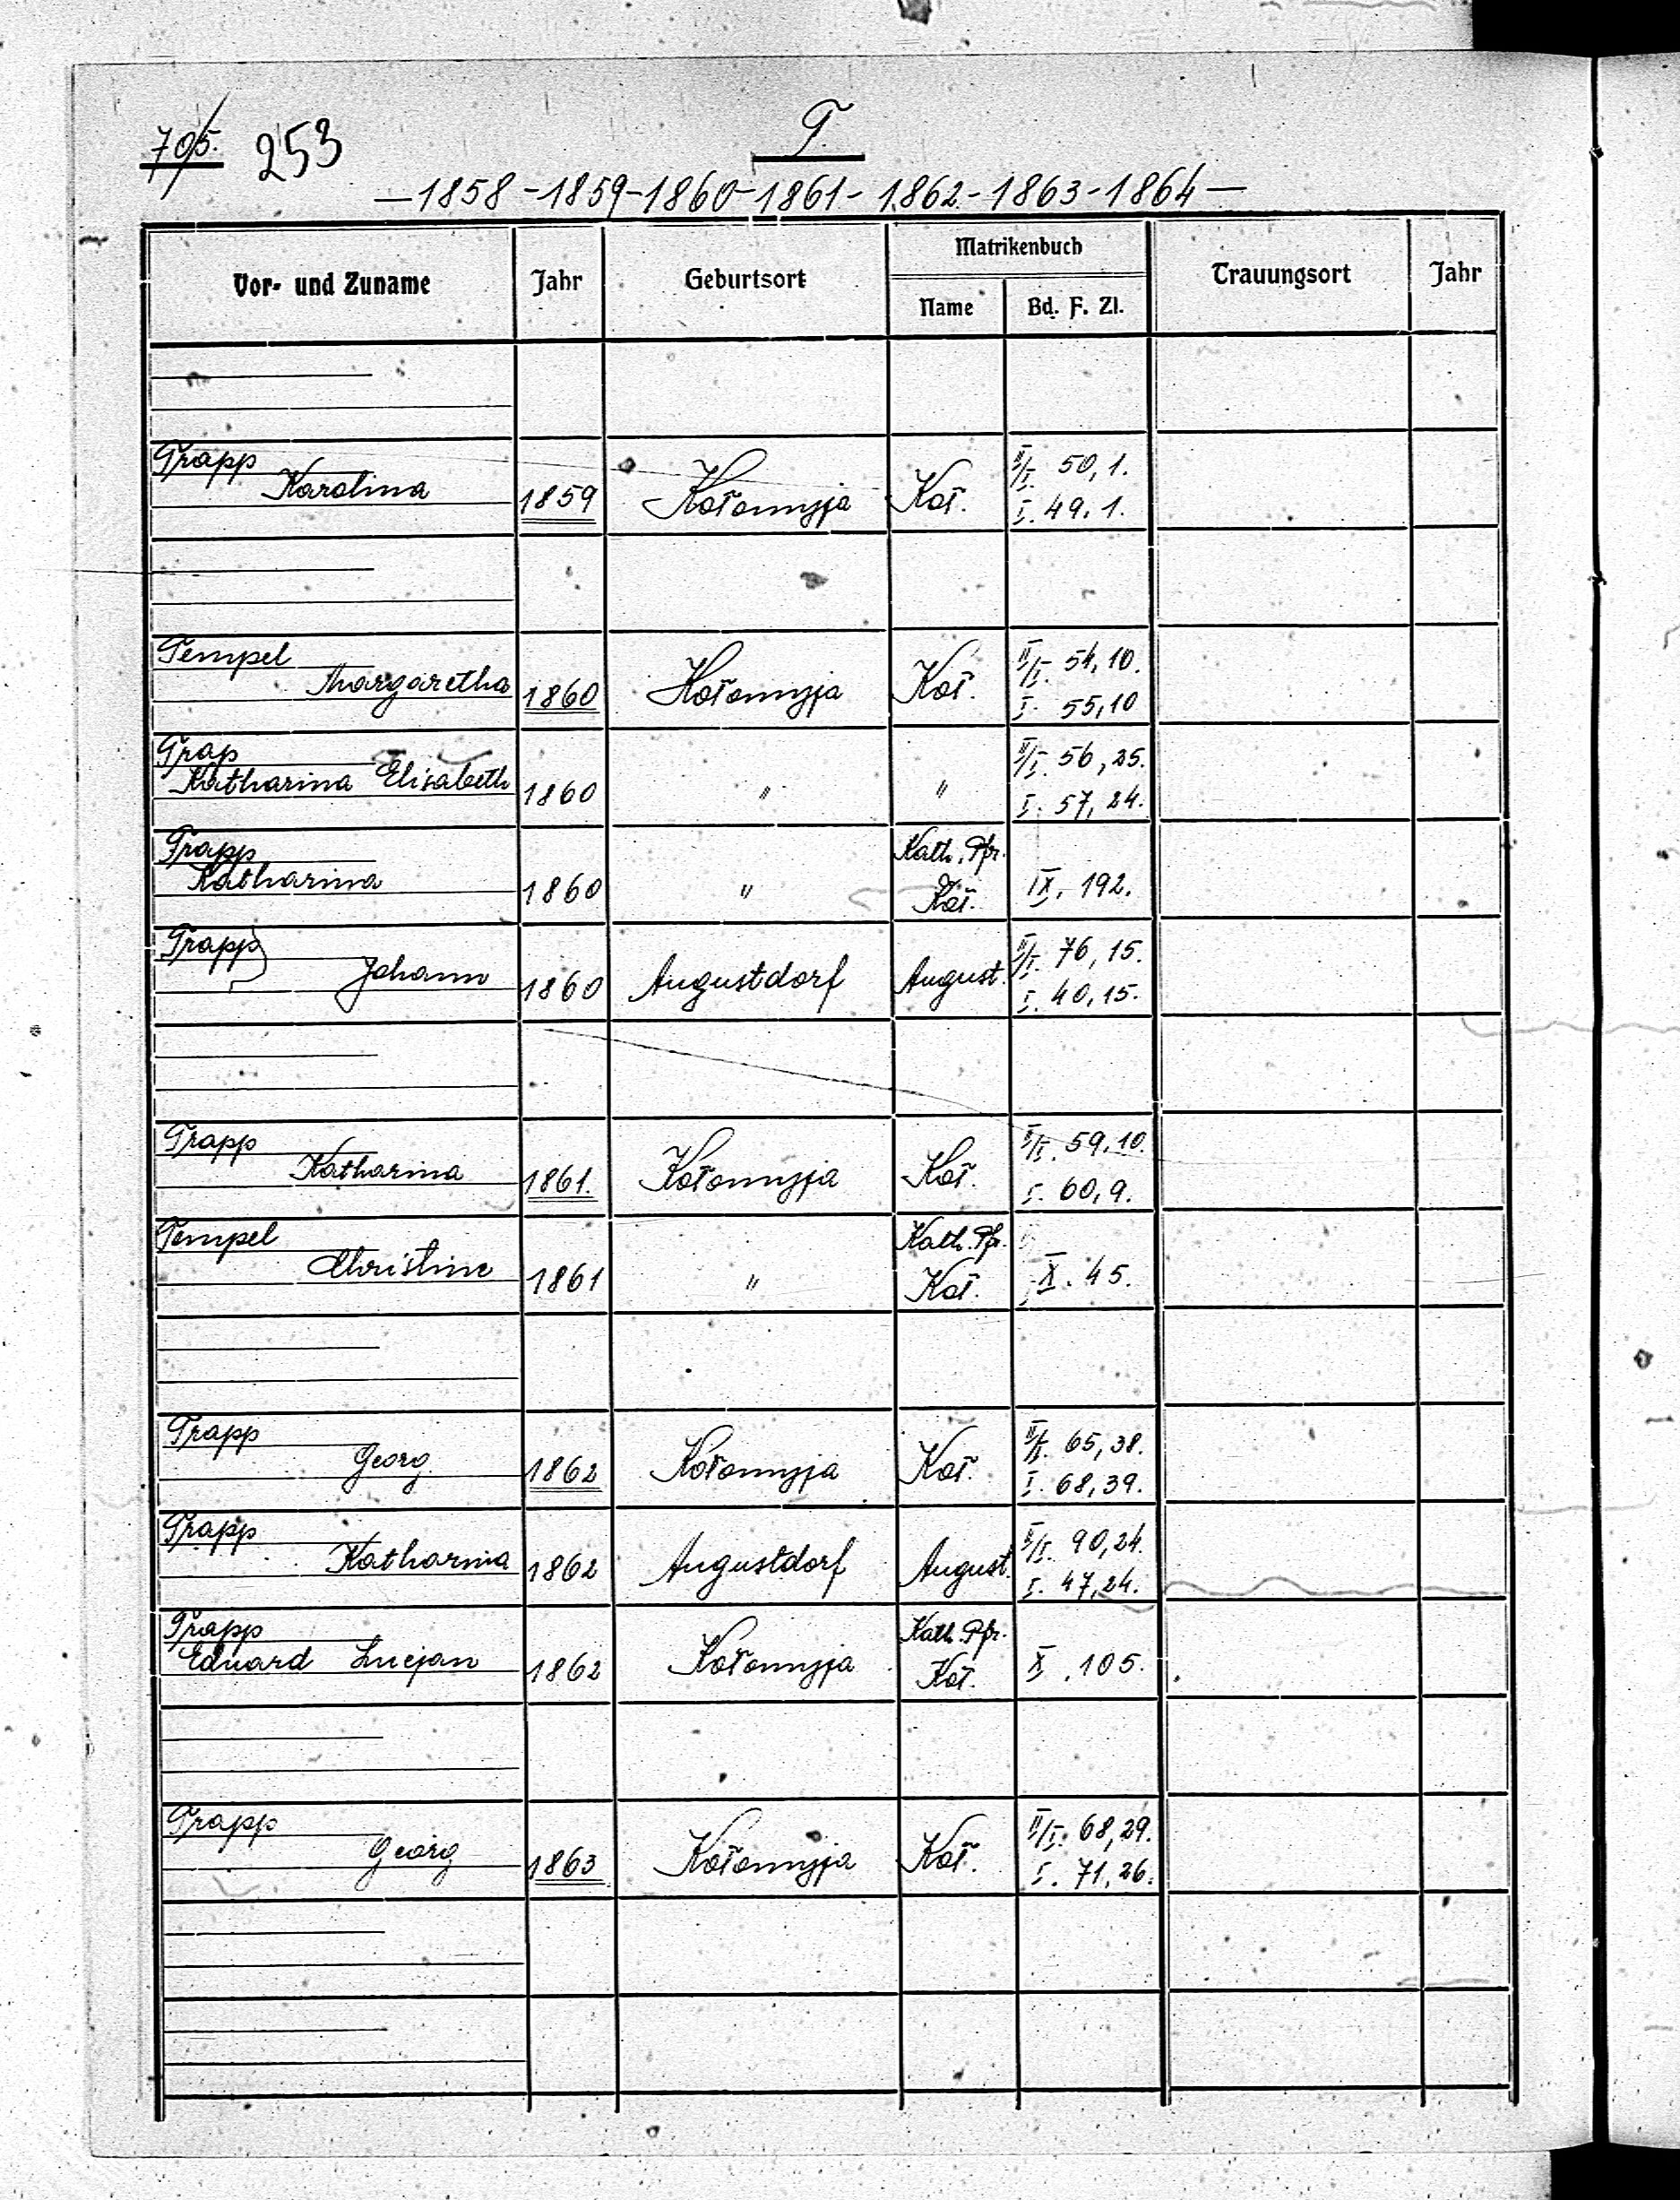 705. 253
T.
—1858-1859-1860-1861-1862-1863-1864—
Vor- und Zuname Jahr Geburtsort Matrikenbuch Trauungsort Jahr
Name Bd. F. Zl.
Trapp II/I. 50,1.
Karolina 1859 Kołomyja Koł. I. 49.1.
Tempel II/I. 54,10.
Margaretha 1860 Kołomyja Koł. I. 55,10
Trap II/I. 56,25.
Katharina Elisabeth 1860 " " I. 57,24.
Trapp Kath. Pfr.
Katharina 1860 " Koł. IX. 192.
Trapp II/I. 76,15.
Johann 1860 Augustdorf August. I. 40,15.
Trapp II/I. 59,10.
Katharina 1861. Kołomyja Koł. I. 60,9.
Tempel Kath. Pfr.
Christine 1861 " Koł. X. 45.
Trapp 65,38.
Georg 1862 Kołomyja Koł. I. 68,39.
Trapp II/I. 90,24.
Katharina 1862 Augustdorf August. I. 47,24.
Trapp Kath. Pfr.
Eduard Lucjan 1862 Kołomyja Koł. X. 105.
Trapp II/I. 68,29.
Georg 1863 Kołomyja Koł. I. 71,26.